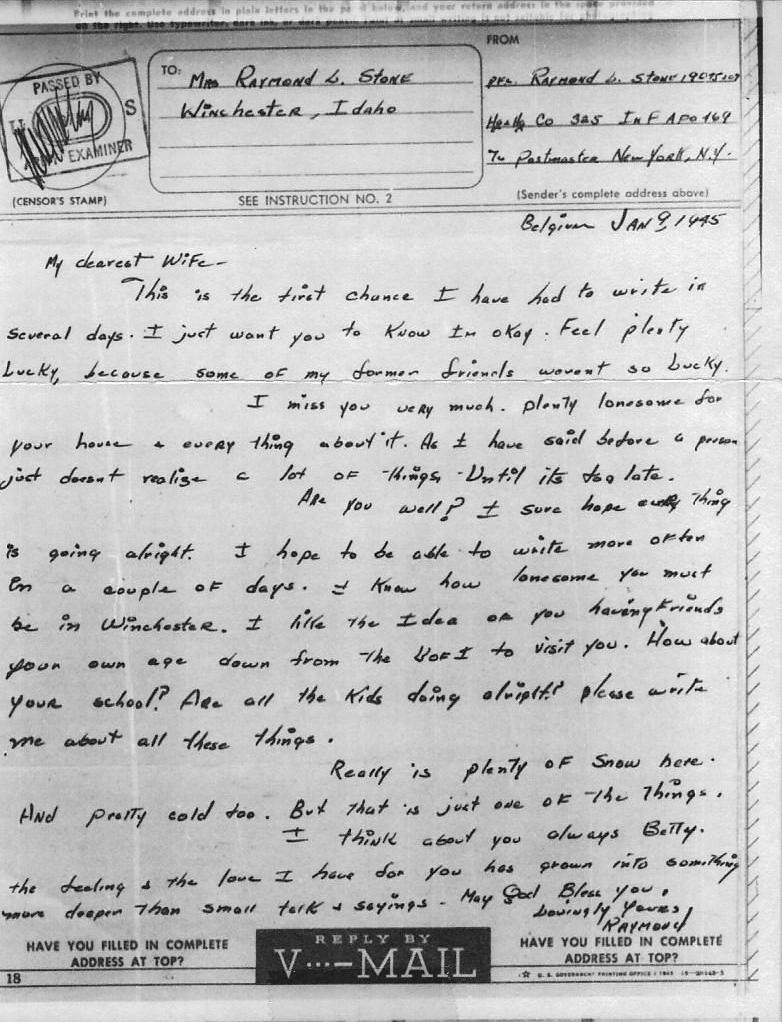 Print the complete address in plain letters in the below, and your return address in the space provided
on the right. Use typewriter, dark ink, or dark pencil. or small writing is not suitable for
PASSED BY
U S
EXAMINER
(CENSOR'S STAMP)
TO:
Mrs Raymond L. Stone
Winchester, Idaho
SEE INSTRUCTION NO. 2
FROM
Pfc. Raymond L. Stone
Hq & Hq Co 325 Inf APO 469
℅ Postmaster New York, N.Y.
(Sender's complete address above)
Belgium Jan 9, 1945
My dearest Wife –
This is the first chance I have had to write in
several days. I just want you to know Im okay. Feel plenty
Lucky, because some of my former friends wevent so Lucky.
I miss you very much. plenty lonesome for
your house & every thing about it. As I have said before a person
just doesnt realize a lot of things Until its too late.
Are you well? I sure hope every thing
is going alright. I hope to be able to write more often
in a couple of days. I know how lonesome you must
be in Winchester. I like the Idea of you having friends
your own age down from the U of I to visit you. How about
your school? Are all the kids doing alright? please write
me about all these things.
Really is plenty of Snow here.
And pretty cold too. But that is just one of the things.
I think about you always Betty.
the feeling & the love I have for you has grown into something
more deeper than small talk & sayings. May God Bless you.
Lovingly Yours,
Raymond
HAVE YOU FILLED IN COMPLETE
ADDRESS AT TOP?
REPLY BY
V···—MAIL
HAVE YOU FILLED IN COMPLETE
ADDRESS AT TOP?
18
☆ U. S. GOVERNMENT PRINTING OFFICE : 1943